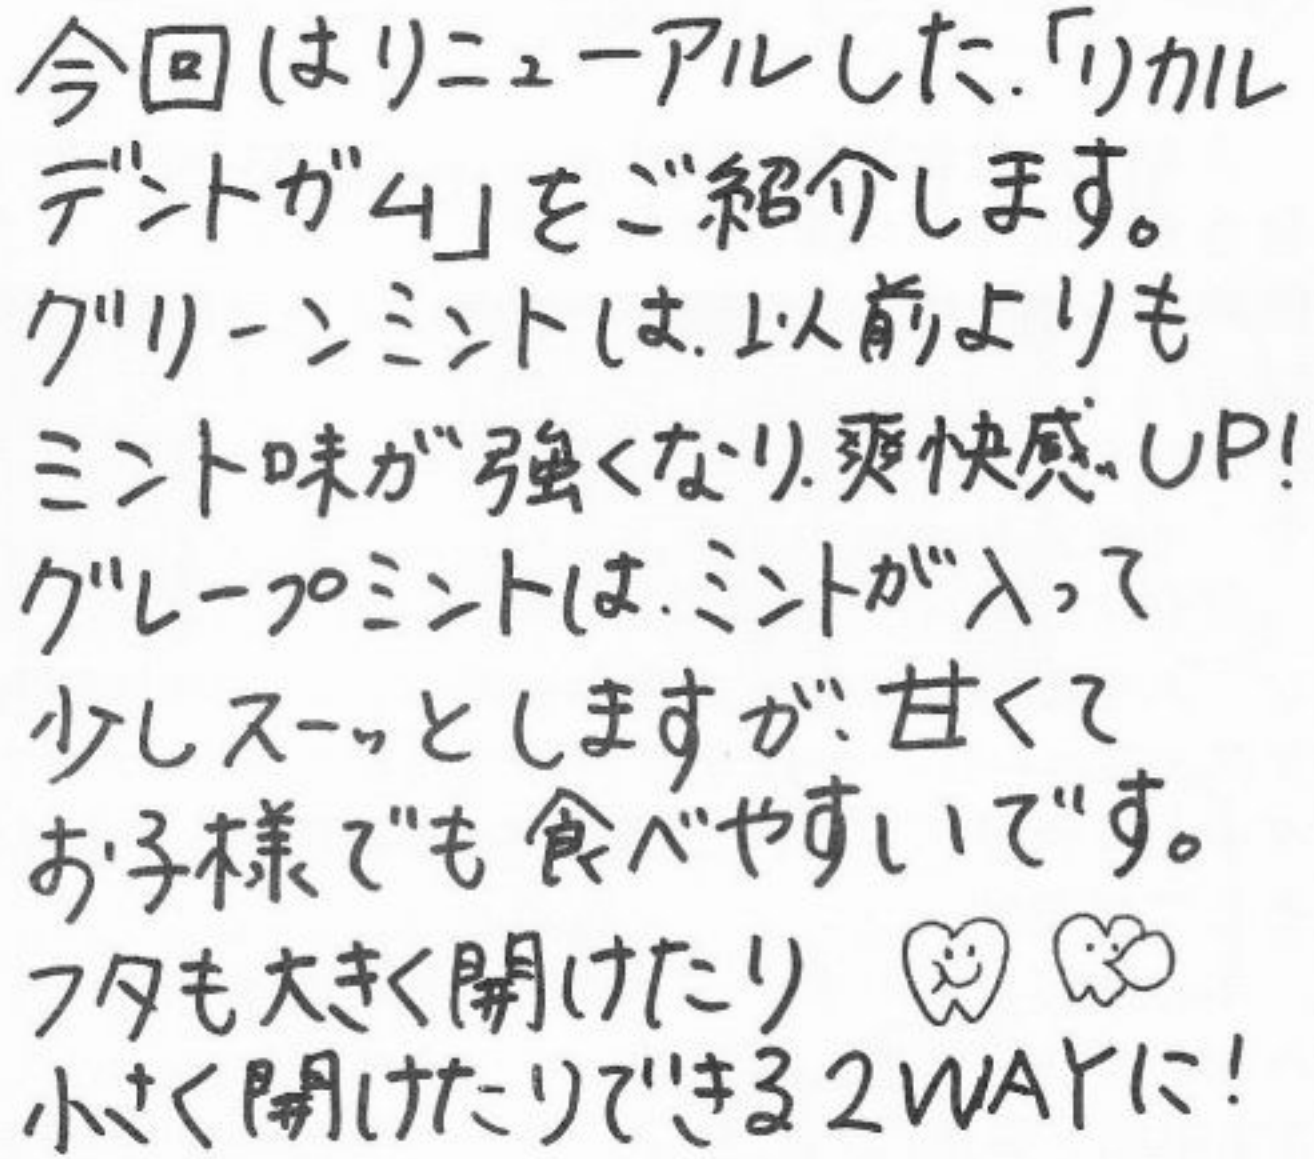 今回はリニューアルした、「リカル
デントガム」をご紹介します。
グリーンミントは、以前よりも
ミント味が強くなり、爽快感UP!
グレープミントは、ミントが入って
少しスーッとしますが、甘くて
お子様でも食べやすいです。
フタも大きく開けたり
小さく開けたりできる2WAYに!